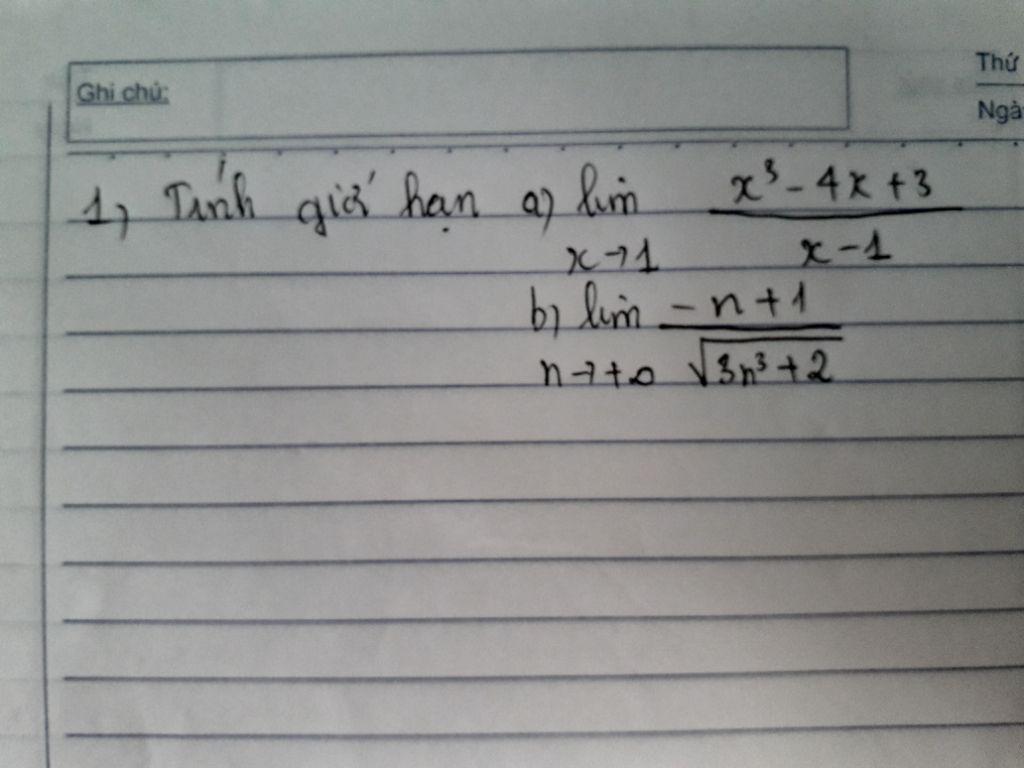 Ghi chú:
Thứ
Ngà
1, Tính giới hạn a) lim x³ - 4x + 3 / x - 1
x→1
b) lim -n + 1 / √3n³ + 2
n→+∞